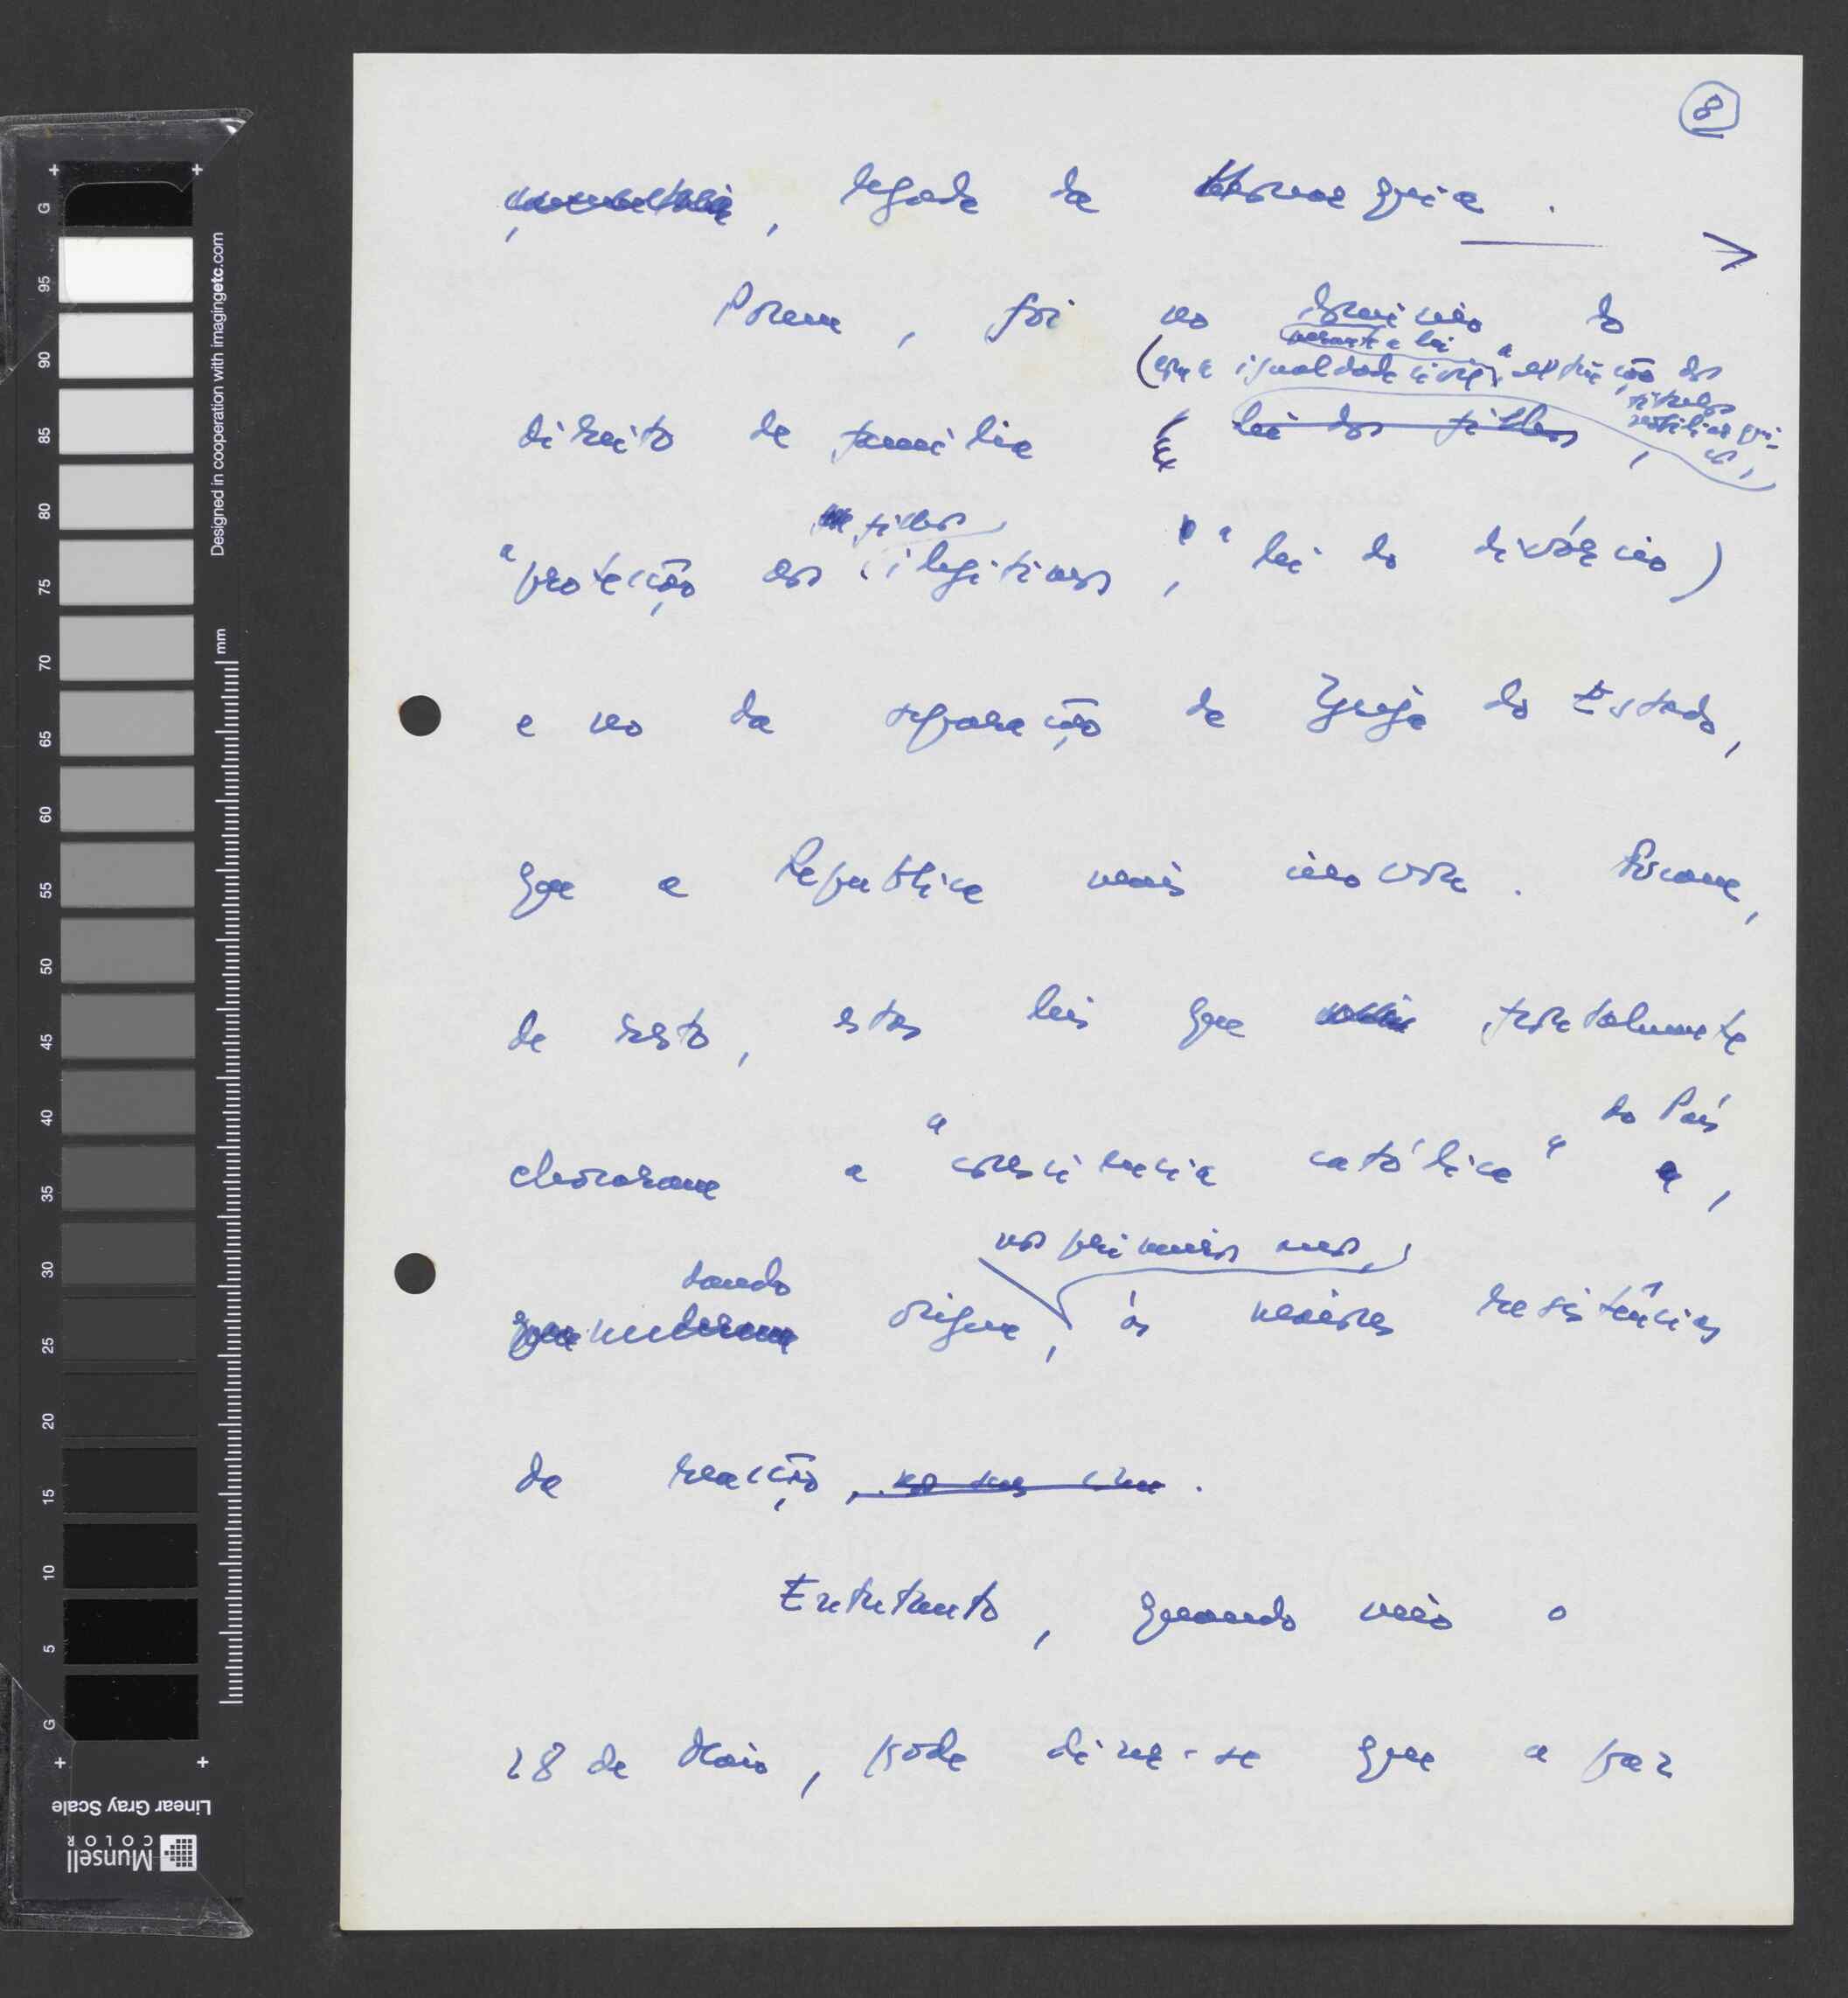 8
, legada da Monarquia.
Porem, foi no dominio do
perante a lei
(com a igualdade civil, a extinção dos
títulos
nobiliárqui-
cos,
direito de familia lei dos filhos,
filhos
a protecção aos ilegitimos, a lei do divórcio)
e no da separação da Igreja do Estado,
que a Republica mais inovou. Foram,
de resto, estas leis que frontalmente
do País
chocaram a "consciencia católica" e,
nos primeiros anos,
dando
origem, às maiores resistências
da reacção, .
Entretanto, quando veio o
28 de Maio, pode dizer-se que a paz
Designed in cooperation with imagingetc.com
mm
G
95
90
85
80
75
70
65
60
55
50
45
40
35
30
25
20
15
10
5
G
Linear Gray Scale
Munsell
COLOR